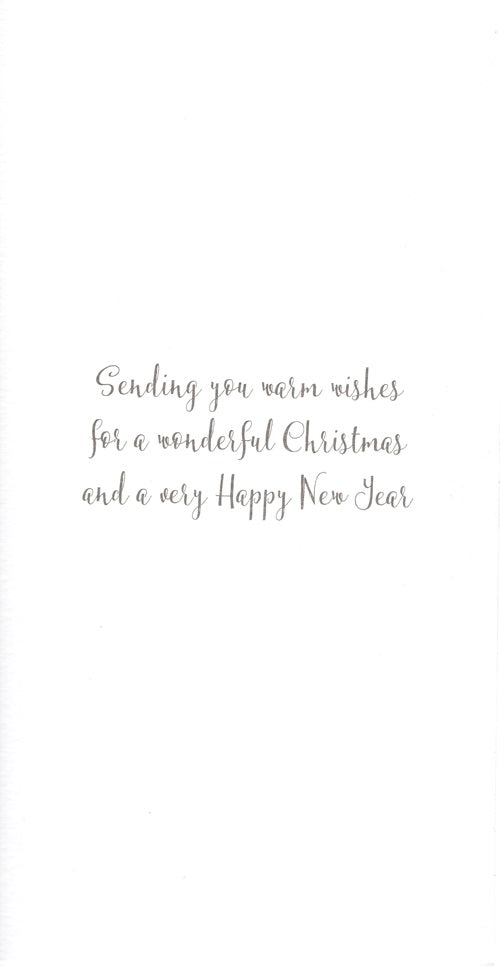 Sending you warm wishes
for a wonderful Christmas
and a very Happy New Year